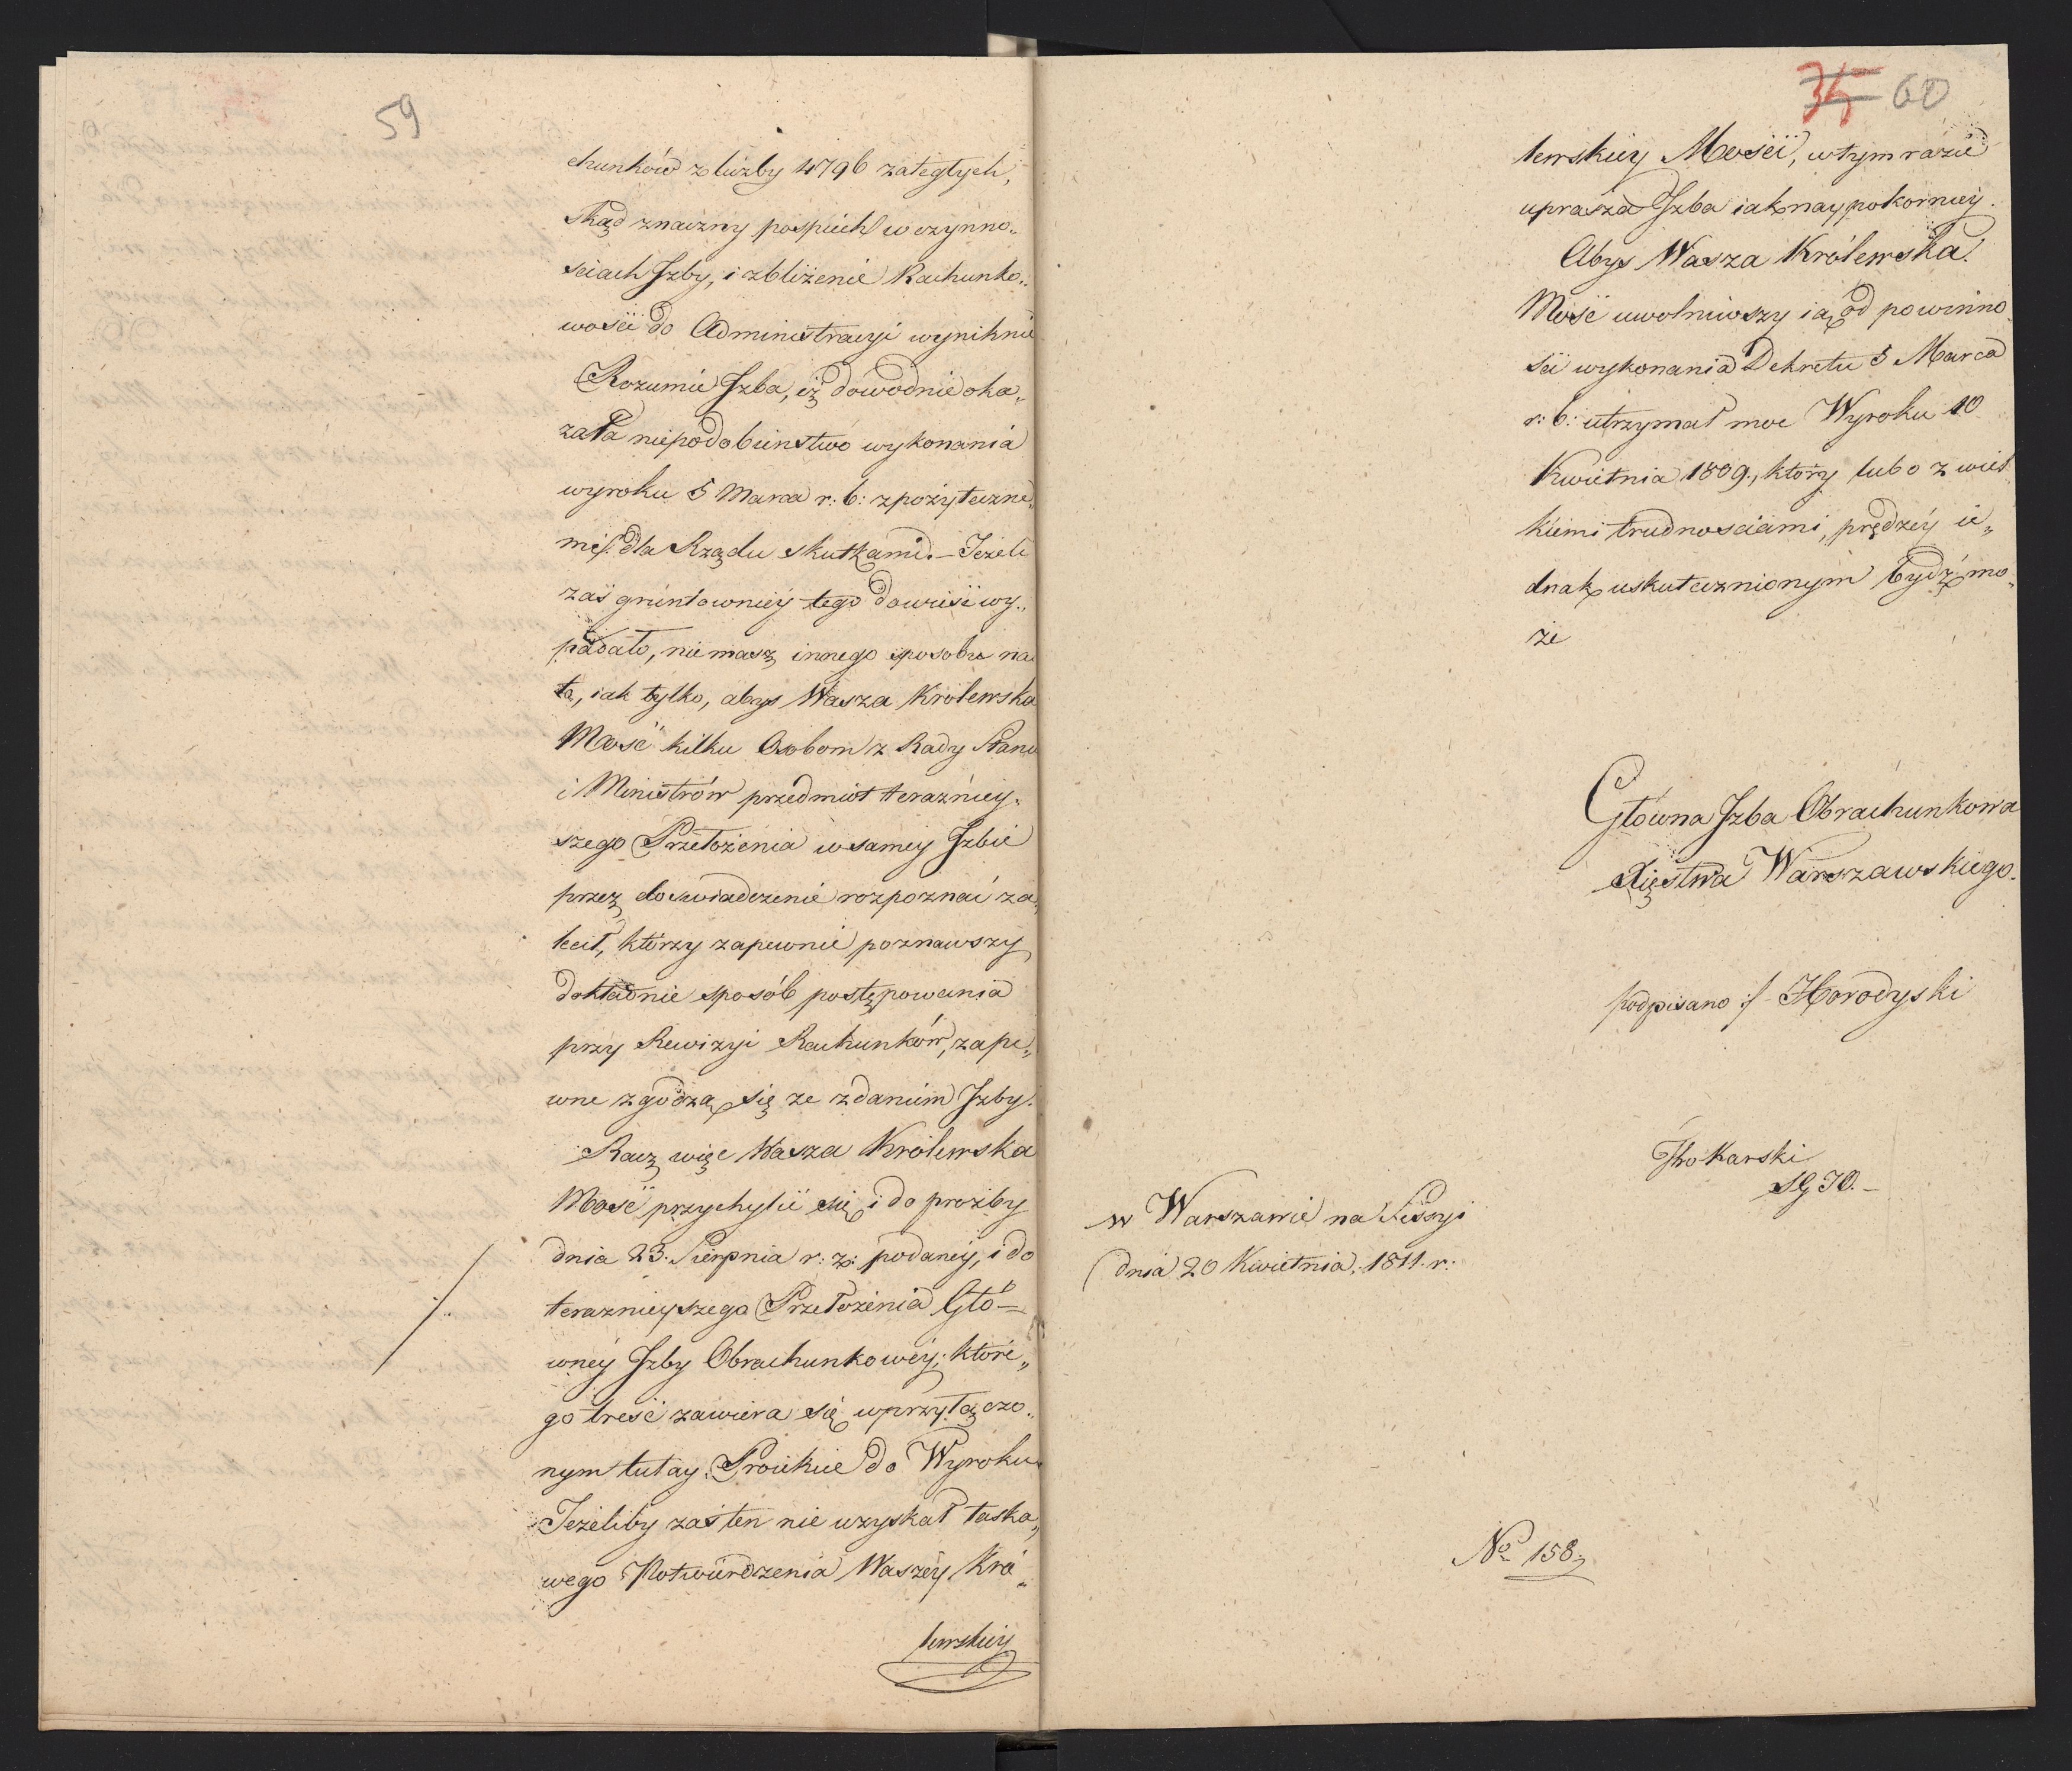 59
chunków z liczby 4796 zaległych,
skąd znaczny pospiech w czynno„
sciach Izby, i zbliżenie Rachunko„
wości do Administracyi wyniknie
Rozumie Izba, iż dowodnie oka„
zała niepodobieństwo wykonania
wyroku 5 Marca r: b: z pożyteczne„
mi dla Rządu skutkami. – Jeżeli
zaś gruntowniey tego dowieść wy„
padało, nie masz innego sposobu na
to, iak tylko, abyś Wasza Królewska
Mość kilku Osobom z Rady Stanu
i Ministrów przedmiot teraźniey„
szego Przełożenia w samey Izbie
przez doswiadczenie rozpoznać za„
lecił, którzy zapewnie poznawszy
dokładnie sposób postępowania
przy Rewizyi Rachunków, zape„
wne zgodzą się ze zdaniem Izby.
Racz więc Wasza Królewska
Mość przychylić się i do prozby
dnia 23. Sierpnia r: z: podaney, i do
teraznieyszego Przełożenia Głó=
wney Izby Obrachunkowey; które„
go treść zawiera się w przyłączo„
nym tutay Proiekcie do Wyroku
Jeżeliby zaś ten nie uzyskał łaska„
wego Potwierdzenia Waszey Kró„
lewskiey
35 60
lewskiey Mości, w tym razie
uprasza Izba iak naypokorniey.
Abyś Wasza Królewska
Mość uwolniwszy ią od powinno„
ści wykonania Dekretu 5 Marca
r: b: utrzymał moc Wyroku 10
Kwietnia 1809., który lubo z wiel„
kiemi trudnosciami, prędzey ie„
dnak uskutecznionym bydź mo„
że
Główna Izba Obrachunkowa
Xięstwa Warszawskiego.
podpisano :/- Horodyski
Tokarski
w Warszawie na Sessyi
dnia 20 Kwietnia. 1811. r:
No 158.